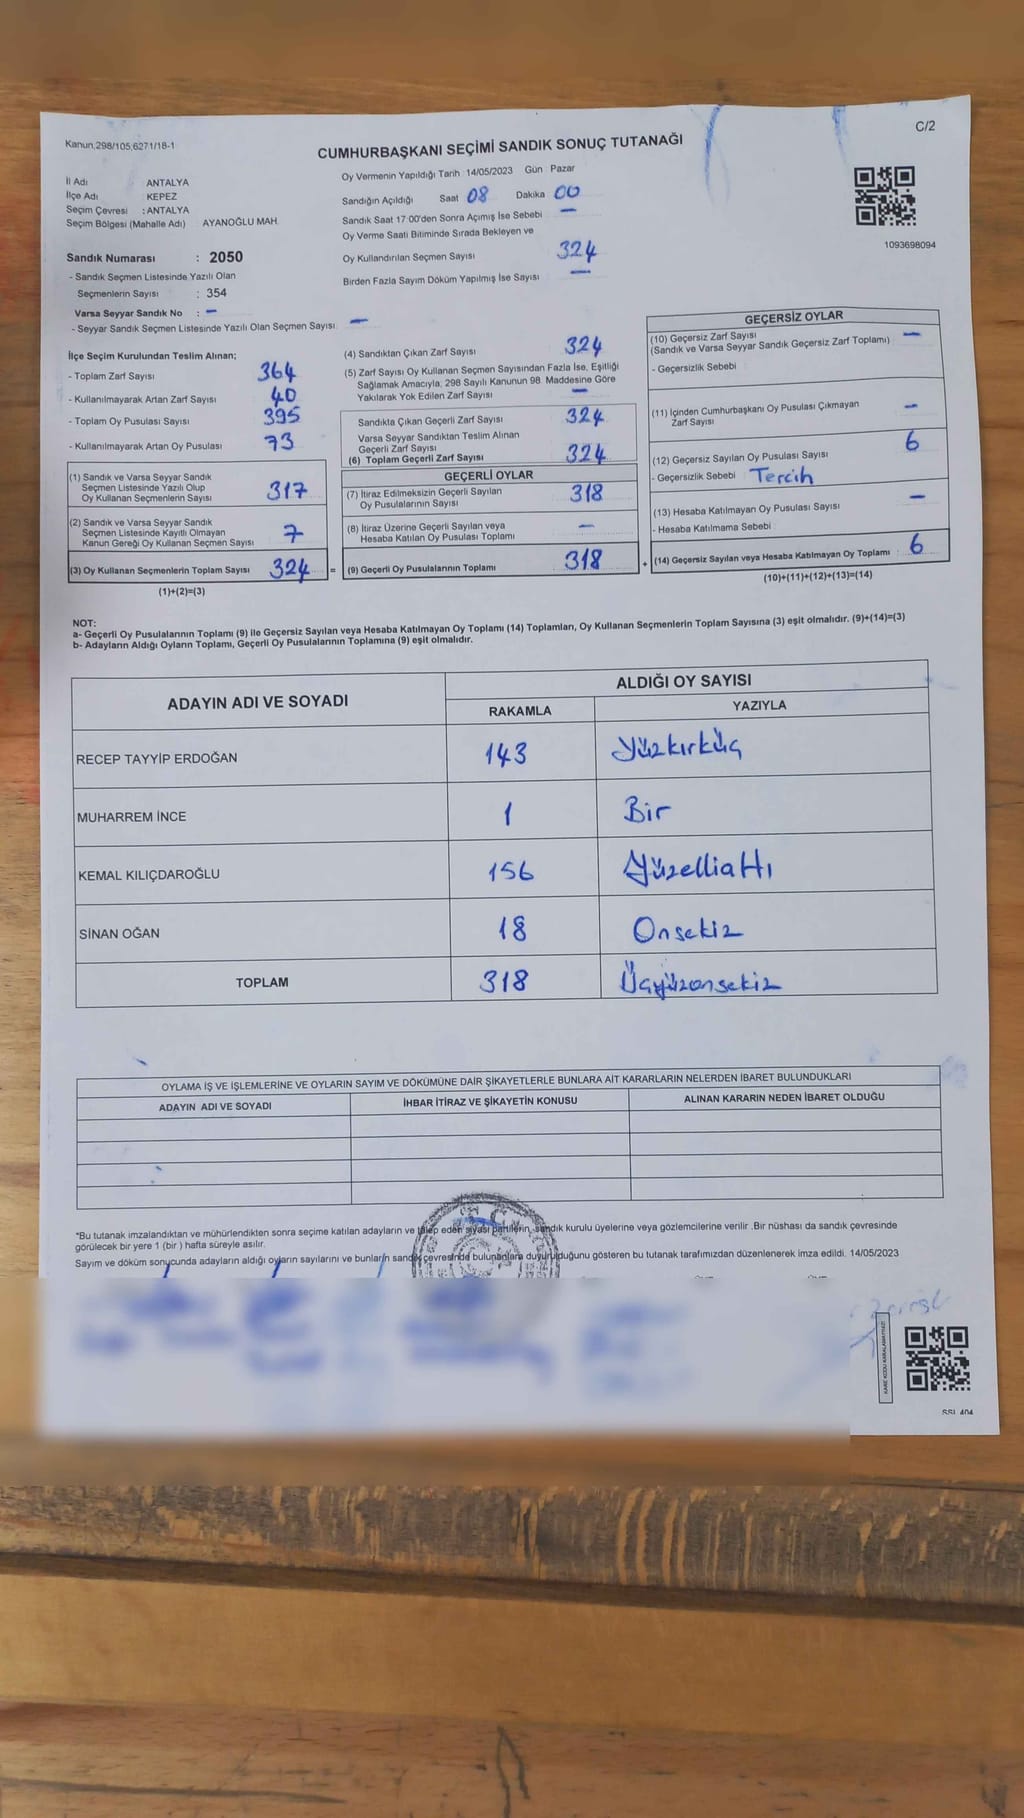 Kanun,298/105,6271/18-1
C/2
CUMHURBAŞKANI SEÇİMİ SANDIK SONUÇ TUTANAĞI
İl Adı ANTALYA
İlçe Adı KEPEZ
Seçim Çevresi : ANTALYA
Seçim Bölgesi (Mahalle Adı) AYANOĞLU MAH.
Sandık Numarası : 2050
- Sandık Seçmen Listesinde Yazılı Olan
Seçmenlerin Sayısı : 354
Varsa Seyyar Sandık No : –
- Seyyar Sandık Seçmen Listesinde Yazılı Olan Seçmen Sayısı –
Oy Vermenin Yapıldığı Tarih 14/05/2023 Gün Pazar
Sandığın Açıldığı Saat 08 Dakika 00
Sandık Saat 17:00'den Sonra Açımış İse Sebebi –
Oy Verme Saati Bitiminde Sırada Bekleyen ve
Oy Kullandırılan Seçmen Sayısı 324
Birden Fazla Sayım Döküm Yapılmış İse Sayısı –
1093698094
İlçe Seçim Kurulundan Teslim Alınan;
- Toplam Zarf Sayısı 364
- Kullanılmayarak Artan Zarf Sayısı 40
- Toplam Oy Pusulası Sayısı 395
- Kullanılmayarak Artan Oy Pusulası 73
(1) Sandık ve Varsa Seyyar Sandık
Seçmen Listesinde Yazılı Olup
Oy Kullanan Seçmenlerin Sayısı 317
(2) Sandık ve Varsa Seyyar Sandık
Seçmen Listesinde Kayıtlı Olmayan
Kanun Gereği Oy Kullanan Seçmen Sayısı 7
(3) Oy Kullanan Seçmenlerin Toplam Sayısı 324 =
(1)+(2)=(3)
(4) Sandıktan Çıkan Zarf Sayısı 324
(5) Zarf Sayısı Oy Kullanan Seçmen Sayısından Fazla İse, Eşitliği
Sağlamak Amacıyla, 298 Sayılı Kanunun 98. Maddesine Göre
Yakılarak Yok Edilen Zarf Sayısı –
Sandıkta Çıkan Geçerli Zarf Sayısı 324
Varsa Seyyar Sandıktan Teslim Alınan
Geçerli Zarf Sayısı
(6) Toplam Geçerli Zarf Sayısı 324
GEÇERLİ OYLAR
(7) İtiraz Edilmeksizin Geçerli Sayılan
Oy Pusulasının Sayısı 318
(8) İtiraz Üzerine Geçerli Sayılan veya
Hesaba Katılan Oy Pusulası Toplamı –
(9) Geçerli Oy Pusulalarının Toplamı 318 +
GEÇERSİZ OYLAR
(10) Geçersiz Zarf Sayısı –
(Sandık ve Varsa Seyyar Sandık Geçersiz Zarf Toplamı)
- Geçersizlik Sebebi
(11) İçinden Cumhurbaşkanı Oy Pusulası Çıkmayan
Zarf Sayısı –
(12) Geçersiz Sayılan Oy Pusulası Sayısı 6
- Geçersizlik Sebebi Tercih
(13) Hesaba Katılmayan Oy Pusulası Sayısı –
- Hesaba Katılmama Sebebi
(14) Geçersiz Sayılan veya Hesaba Katılmayan Oy Toplamı : 6
(10)+(11)+(12)+(13)=(14)
NOT:
a- Geçerli Oy Pusulalarının Toplamı (9) ile Geçersiz Sayılan veya Hesaba Katılmayan Oy Toplamı (14) Toplamları, Oy Kullanan Seçmenlerin Toplam Sayısına (3) eşit olmalıdır. (9)+(14)=(3)
b- Adayların Aldığı Oyların Toplamı, Geçerli Oy Pusulalarının Toplamına (9) eşit olmalıdır.
ADAYIN ADI VE SOYADI ALDIĞI OY SAYISI
RAKAMLA YAZIYLA
RECEP TAYYİP ERDOĞAN 143 Yüzkırküç
MUHARREM İNCE 1 Bir
KEMAL KILIÇDAROĞLU 156 Yüzellialtı
SİNAN OĞAN 18 Onsekiz
TOPLAM 318 Üçyüzonsekiz
OYLAMA İŞ VE İŞLEMLERİNE VE OYLARIN SAYIM VE DÖKÜMÜNE DAİR ŞİKAYETLERLE BUNLARA AİT KARARLARIN NELERDEN İBARET BULUNDUKLARI
ADAYIN ADI VE SOYADI İHBAR İTİRAZ VE ŞİKAYETİN KONUSU ALINAN KARARIN NEDEN İBARET OLDUĞU
*Bu tutanak imzalandıktan ve mühürlendikten sonra seçime katılan adayların ve talep eden siyasi partilerin, sandık kurulu üyelerine veya gözlemcilerine verilir .Bir nüshası da sandık çevresinde
görülecek bir yere 1 (bir ) hafta süreyle asılır.
Sayım ve döküm sonucunda adayların aldığı oyların sayılarını ve bunların sandık çevresinde bulunanlara duyurulduğunu gösteren bu tutanak tarafımızdan düzenlenerek imza edildi. 14/05/2023
KARE KODU KARALAMAYINIZ!